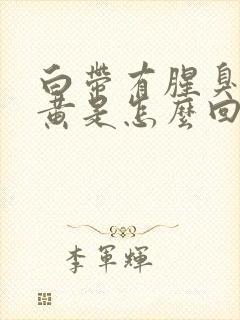 白带有腥臭
黄是怎麼回
李軍輝